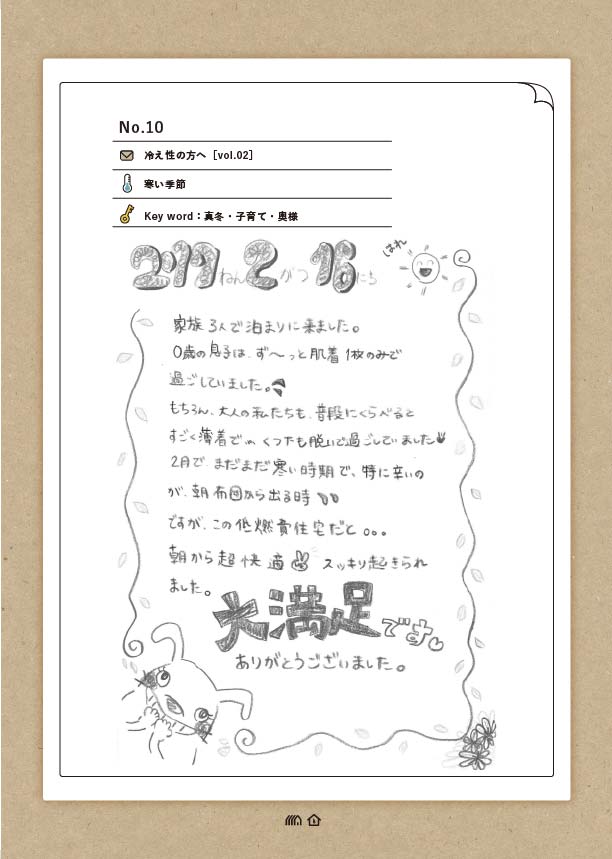 No.10
冷え性の方へ［vol.02］
寒い季節
Key word：真冬・子育て・奥様
2017ねん2がつ16にち
はれ
家族3人で泊まりに来ました。
0歳の息子は、ず〜っと肌着1枚のみで
過ごしていました。
もちろん、大人の私たちも、普段にくらべると
すごく薄着で… くつ下も脱いで過ごしていました
2月で、まだまだ寒い時期で、特に辛いの
が、朝布団から出る時
ですが、この低燃費住宅だと。。。
朝から超快適 スッキリ起きられ
ました。
大満足です。
ありがとうございました。